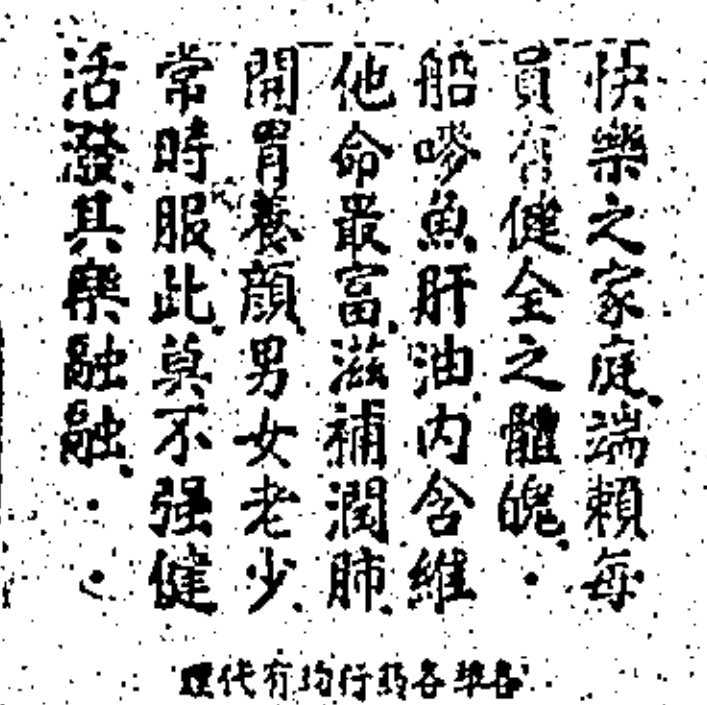 快樂之家庭端賴每
員有健全之體魄
船嘜魚肝油內含維
他命最富滋補潤肺
開胃養顏男女老少
常時服此莫不强健
活潑其樂融融
各埠各藥行均有代理